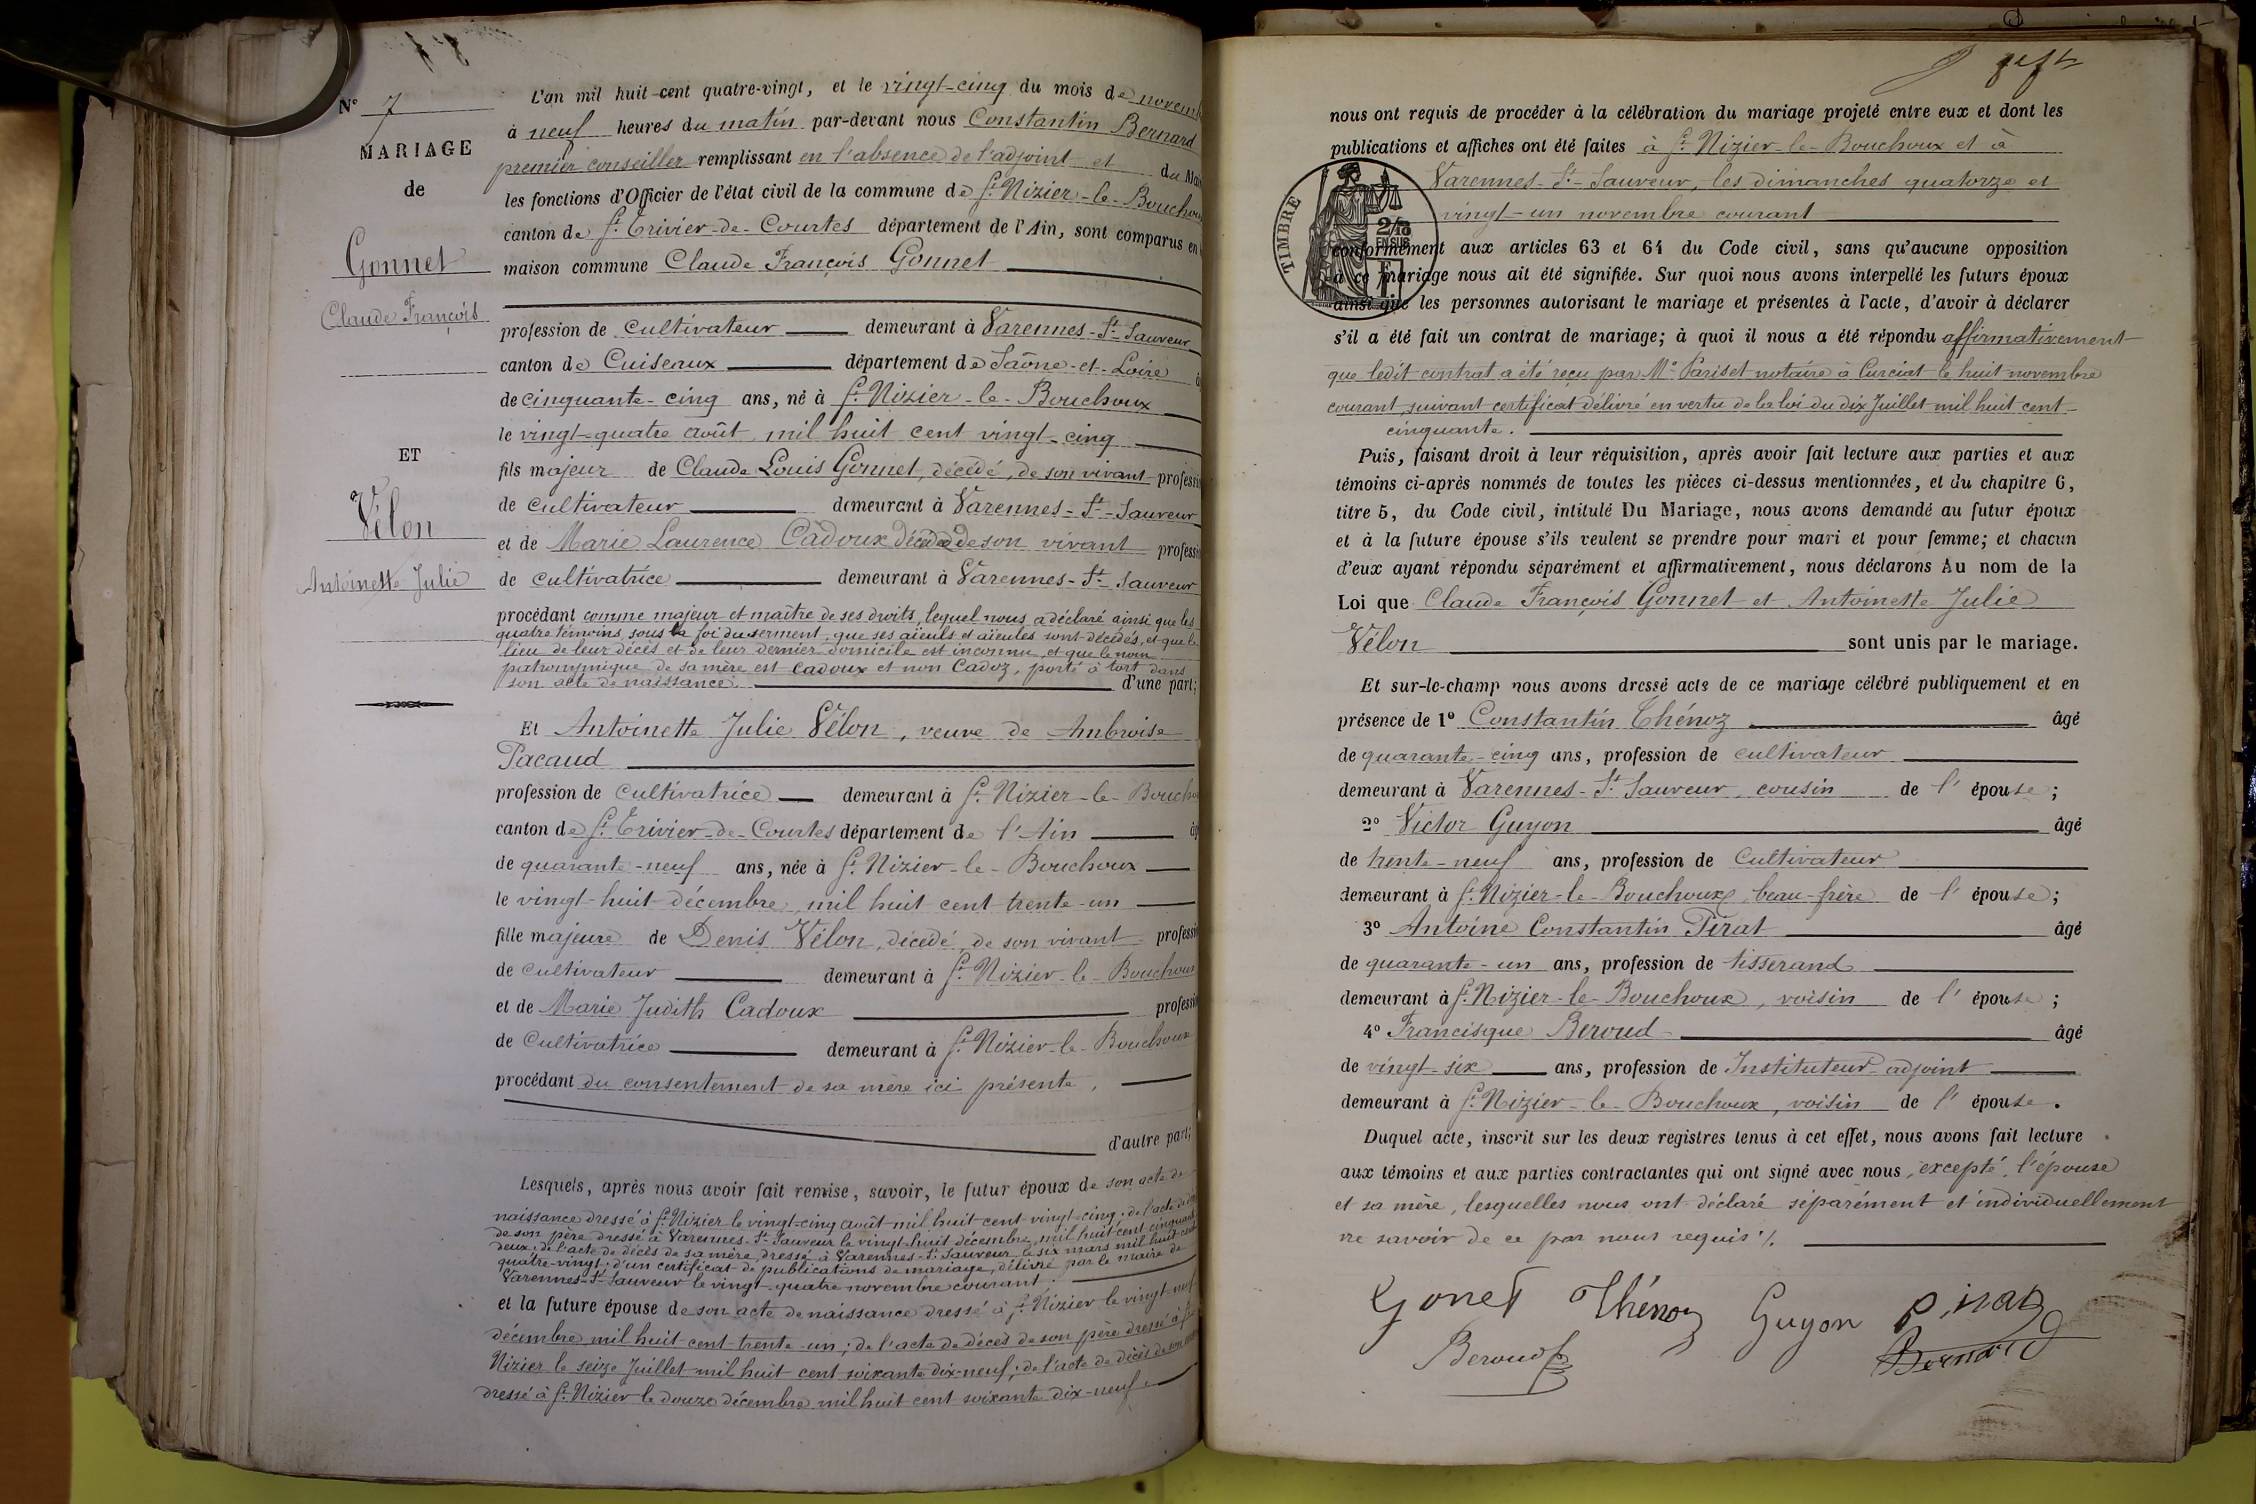 N° 7
MARIAGE
de
Gonnet
Claude François
ET
Vélon
Antoinette Julie
L'an mil huit cent quatre-vingt, et le vingt-cinq du mois de novem
à neuf heures du matin par-devant nous Constantin Bernard
premier conseiller remplissant en l'absence de l'adjoint et du Mai
les fonctions d'Officier de l'état civil de la commune de St Nizier-le-Bouchoux
canton de St Trivier-de-Courtes département de l'Ain, sont comparus en
maison commune Claude François Gonnet
profession de cultivateur demeurant à Varennes-St-Sauveur
canton de Cuiseaux département de Saône-et-Loire
de cinquante-cinq ans, né à St Nizier-le-Bouchoux
le vingt-quatre août mil huit cent vingt-cinq
fils majeur de Claude Louis Gonnet, décédé, de son vivant professi
de cultivateur demeurant à Varennes-St-Sauveur
et de Marie Laurence Cadoux décédée de son vivant professi
de cultivatrice demeurant à Varennes-St-Sauveur
procédant comme majeur et maître de ses droits, lequel nous a déclaré ainsi que les
quatre témoins, sous la foi du serment, que ses aïeuls et aïeules sont décédés, et que le
lieu de leur décès et de leur dernier domicile est inconnu, et que le nom
patronymique de sa mère est Cadoux et non Cadoz, porté à tort dans
son acte de naissance. d'une part;
Et Antoinette Julie Vélon, veuve de Ambroise
Pacaud
profession de cultivatrice demeurant à St Nizier-le-Bouch
canton de St Trivier-de-Courtes département de l'Ain âg
de quarante-neuf ans, née à St Nizier-le-Bouchoux
le vingt-huit décembre, mil huit cent trente-un
fille majeure de Denis Vélon, décédé, de son vivant professi
de cultivateur demeurant à St Nizier-le-Bouchoux
et de Marie Judith Cadoux professi
de Cultivatrice demeurant à St Nizier-le-Bouchoux
procédant du consentement de sa mère ici présente,
d'autre part;
Lesquels, après nous avoir fait remise, savoir, le futur époux de son acte de
naissance dressé à St Nizier le vingt-cinq août mil huit cent vingt-cinq; de l'acte de
de son père dressé à Varennes-St-Sauveur le vingt-huit décembre, mil huit cent cinquante
deux; de l'acte de décès de sa mère, dressé à Varennes-St-Sauveur le six mars mil huit cent
quatre-vingt; d'un certificat de publications de mariage, délivré par le maire de
Varennes-St-Sauveur le vingt-quatre novembre courant.
et la future épouse de son acte de naissance dressé à St Nizier le vingt-neuf
décembre mil huit cent trente-un; de l'acte de décès de son père dressé à St
Nizier le seize Juillet mil huit cent soixante dix-neuf; de l'acte de décès de son
dressé à St Nizier le douze décembre mil huit cent soixante dix-neuf.
nous ont requis de procéder à la célébration du mariage projeté entre eux et dont les
publications et affiches ont été faites à St Nizier-le-Bouchoux et à
Varennes-St-Sauveur, les dimanches quatorze et
vingt-un novembre courant
TIMBRE
2/10
EN SUS
conformément aux articles 63 et 64 du Code civil, sans qu'aucune opposition
à ce mariage nous ait été signifiée. Sur quoi nous avons interpellé les futurs époux
ainsi que les personnes autorisant le mariage et présentes à l'acte, d'avoir à déclarer
s'il a été fait un contrat de mariage; à quoi il nous a été répondu affirmativement
que ledit contrat a été reçu par Me Pariset notaire à Curciat le huit novembre
courant, suivant certificat délivré en vertu de la loi du dix Juillet mil huit cent
cinquante.
Puis, faisant droit à leur réquisition, après avoir fait lecture aux parties et aux
témoins ci-après nommés de toutes les pièces ci-dessus mentionnées, et du chapitre 6,
titre 5, du Code civil, intitulé Du Mariage, nous avons demandé au futur époux
et à la future épouse s'ils veulent se prendre pour mari et pour femme; et chacun
d'eux ayant répondu séparément et affirmativement, nous déclarons Au nom de la
Loi que Claude François Gonnet et Antoinette Julie
Vélon sont unis par le mariage.
Et sur-le-champ nous avons dressé acte de ce mariage célébré publiquement et en
présence de 1° Constantin Thénoz âgé
de quarante-cinq ans, profession de cultivateur
demeurant à Varennes-St Sauveur, cousin de l'épouse;
2° Victor Guyon âgé
de trente-neuf ans, profession de Cultivateur
demeurant à St Nizier-le-Bouchoux, beau-frère de l'épouse;
3° Antoine Constantin Pirat âgé
de quarante-un ans, profession de tisserand
demeurant à St Nizier-le-Bouchoux, voisin de l'épouse;
4° Francisque Beroud âgé
de vingt-six ans, profession de Instituteur-adjoint
demeurant à St Nizier-le-Bouchoux, voisin de l'épouse.
Duquel acte, inscrit sur les deux registres tenus à cet effet, nous avons fait lecture
aux témoins et aux parties contractantes qui ont signé avec nous, excepté l'épouse
et sa mère, lesquelles nous ont déclaré séparément et individuellement
ne savoir de ce par nous requis ./.
Gonet Thénoz Guyon Pirat
Beroud Bernard